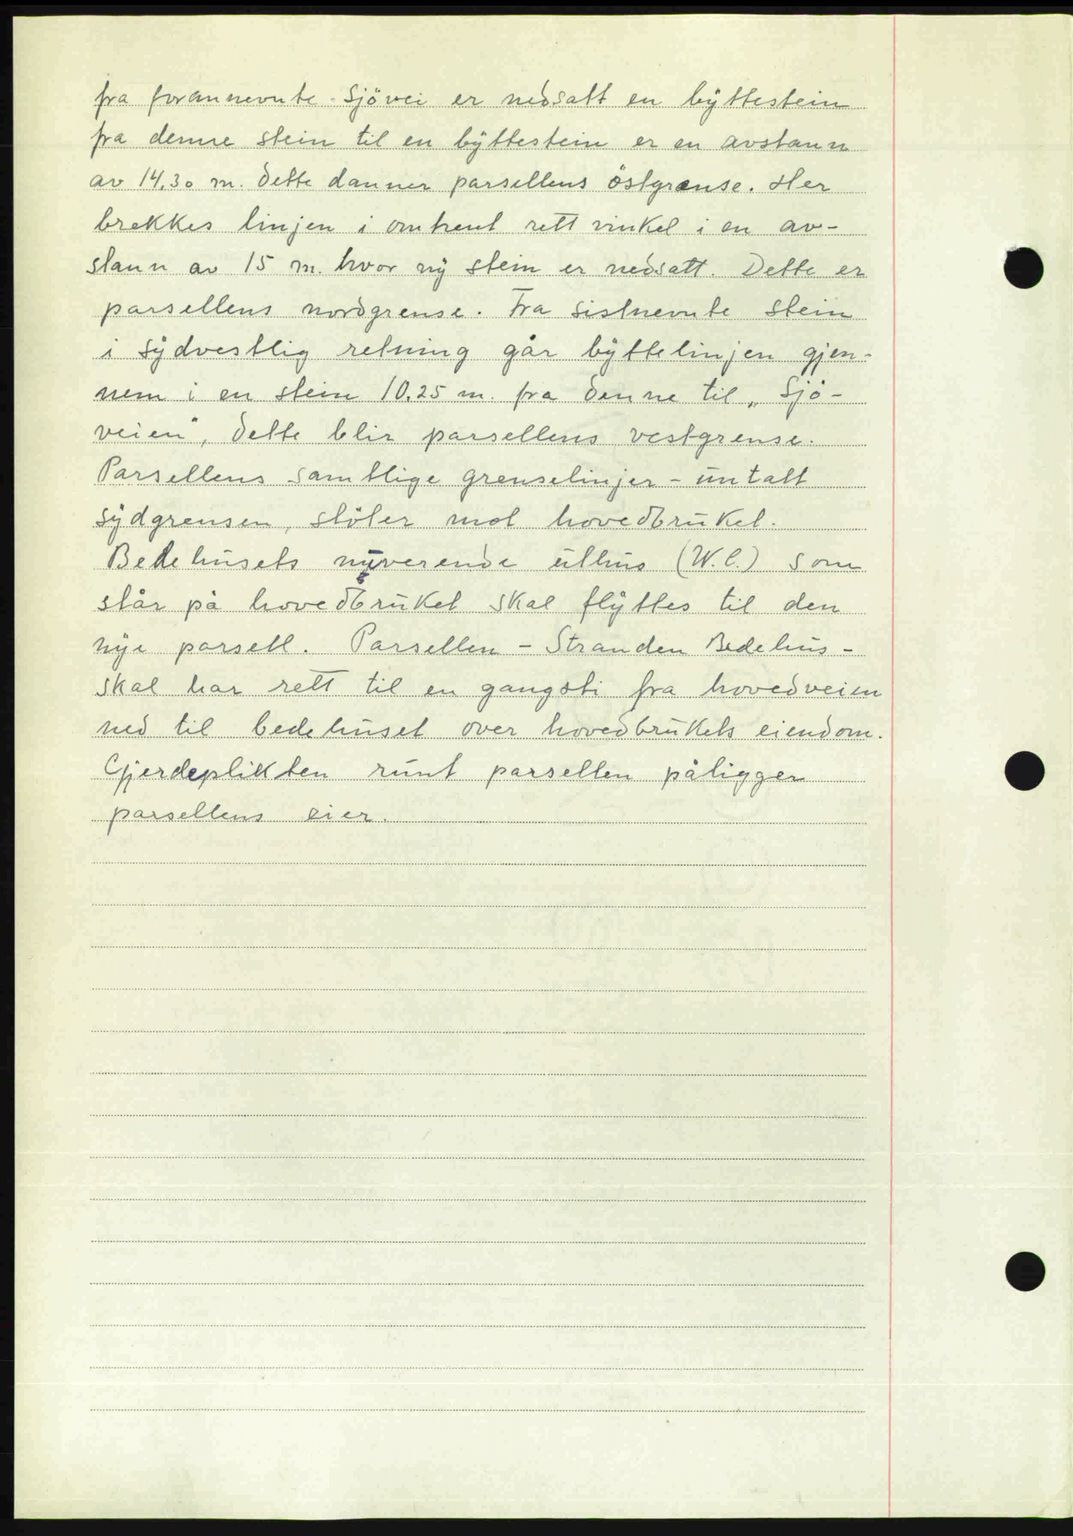 fra forannevnte Sjövei er nedsatt en byttestein
fra denne stein til en byttestein er en avstann
av 14.30 m. dette danner parsellens östgrense. Her
brekkes linjen i omtrent rett vinkel i en av-
stann av 15 m. hvor ny stein er nedsatt. Dette er
parsellens nordgrense. Fra sistnevnte stein
i sydvestlig retning går byttelinjen gjen-
nem i en stein 10.25 m. fra denne til „Sjö-
veien", dette blir parsellens vestgrense.
Parsellens samtlige grenselinjer - untatt
sydgrensen, stöter mot hovedbruket.
Bedehusets nuverende uthus (W.C.) som
står på hovedbruket skal flyttes til den
nye parsell. Parsellen - Stranden Bedehus -
skal har rett til en gangsti fra hovedveien
ned til bedehuset over hovedbrukets eiendom.
Gjerdeplikten runt parsellen påligger
parsellens eier.